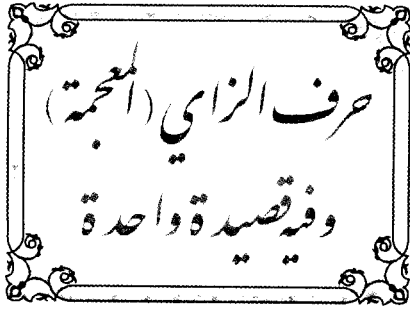 حرف الزاي (المعجمة)
وفيه قصيدة واحدة